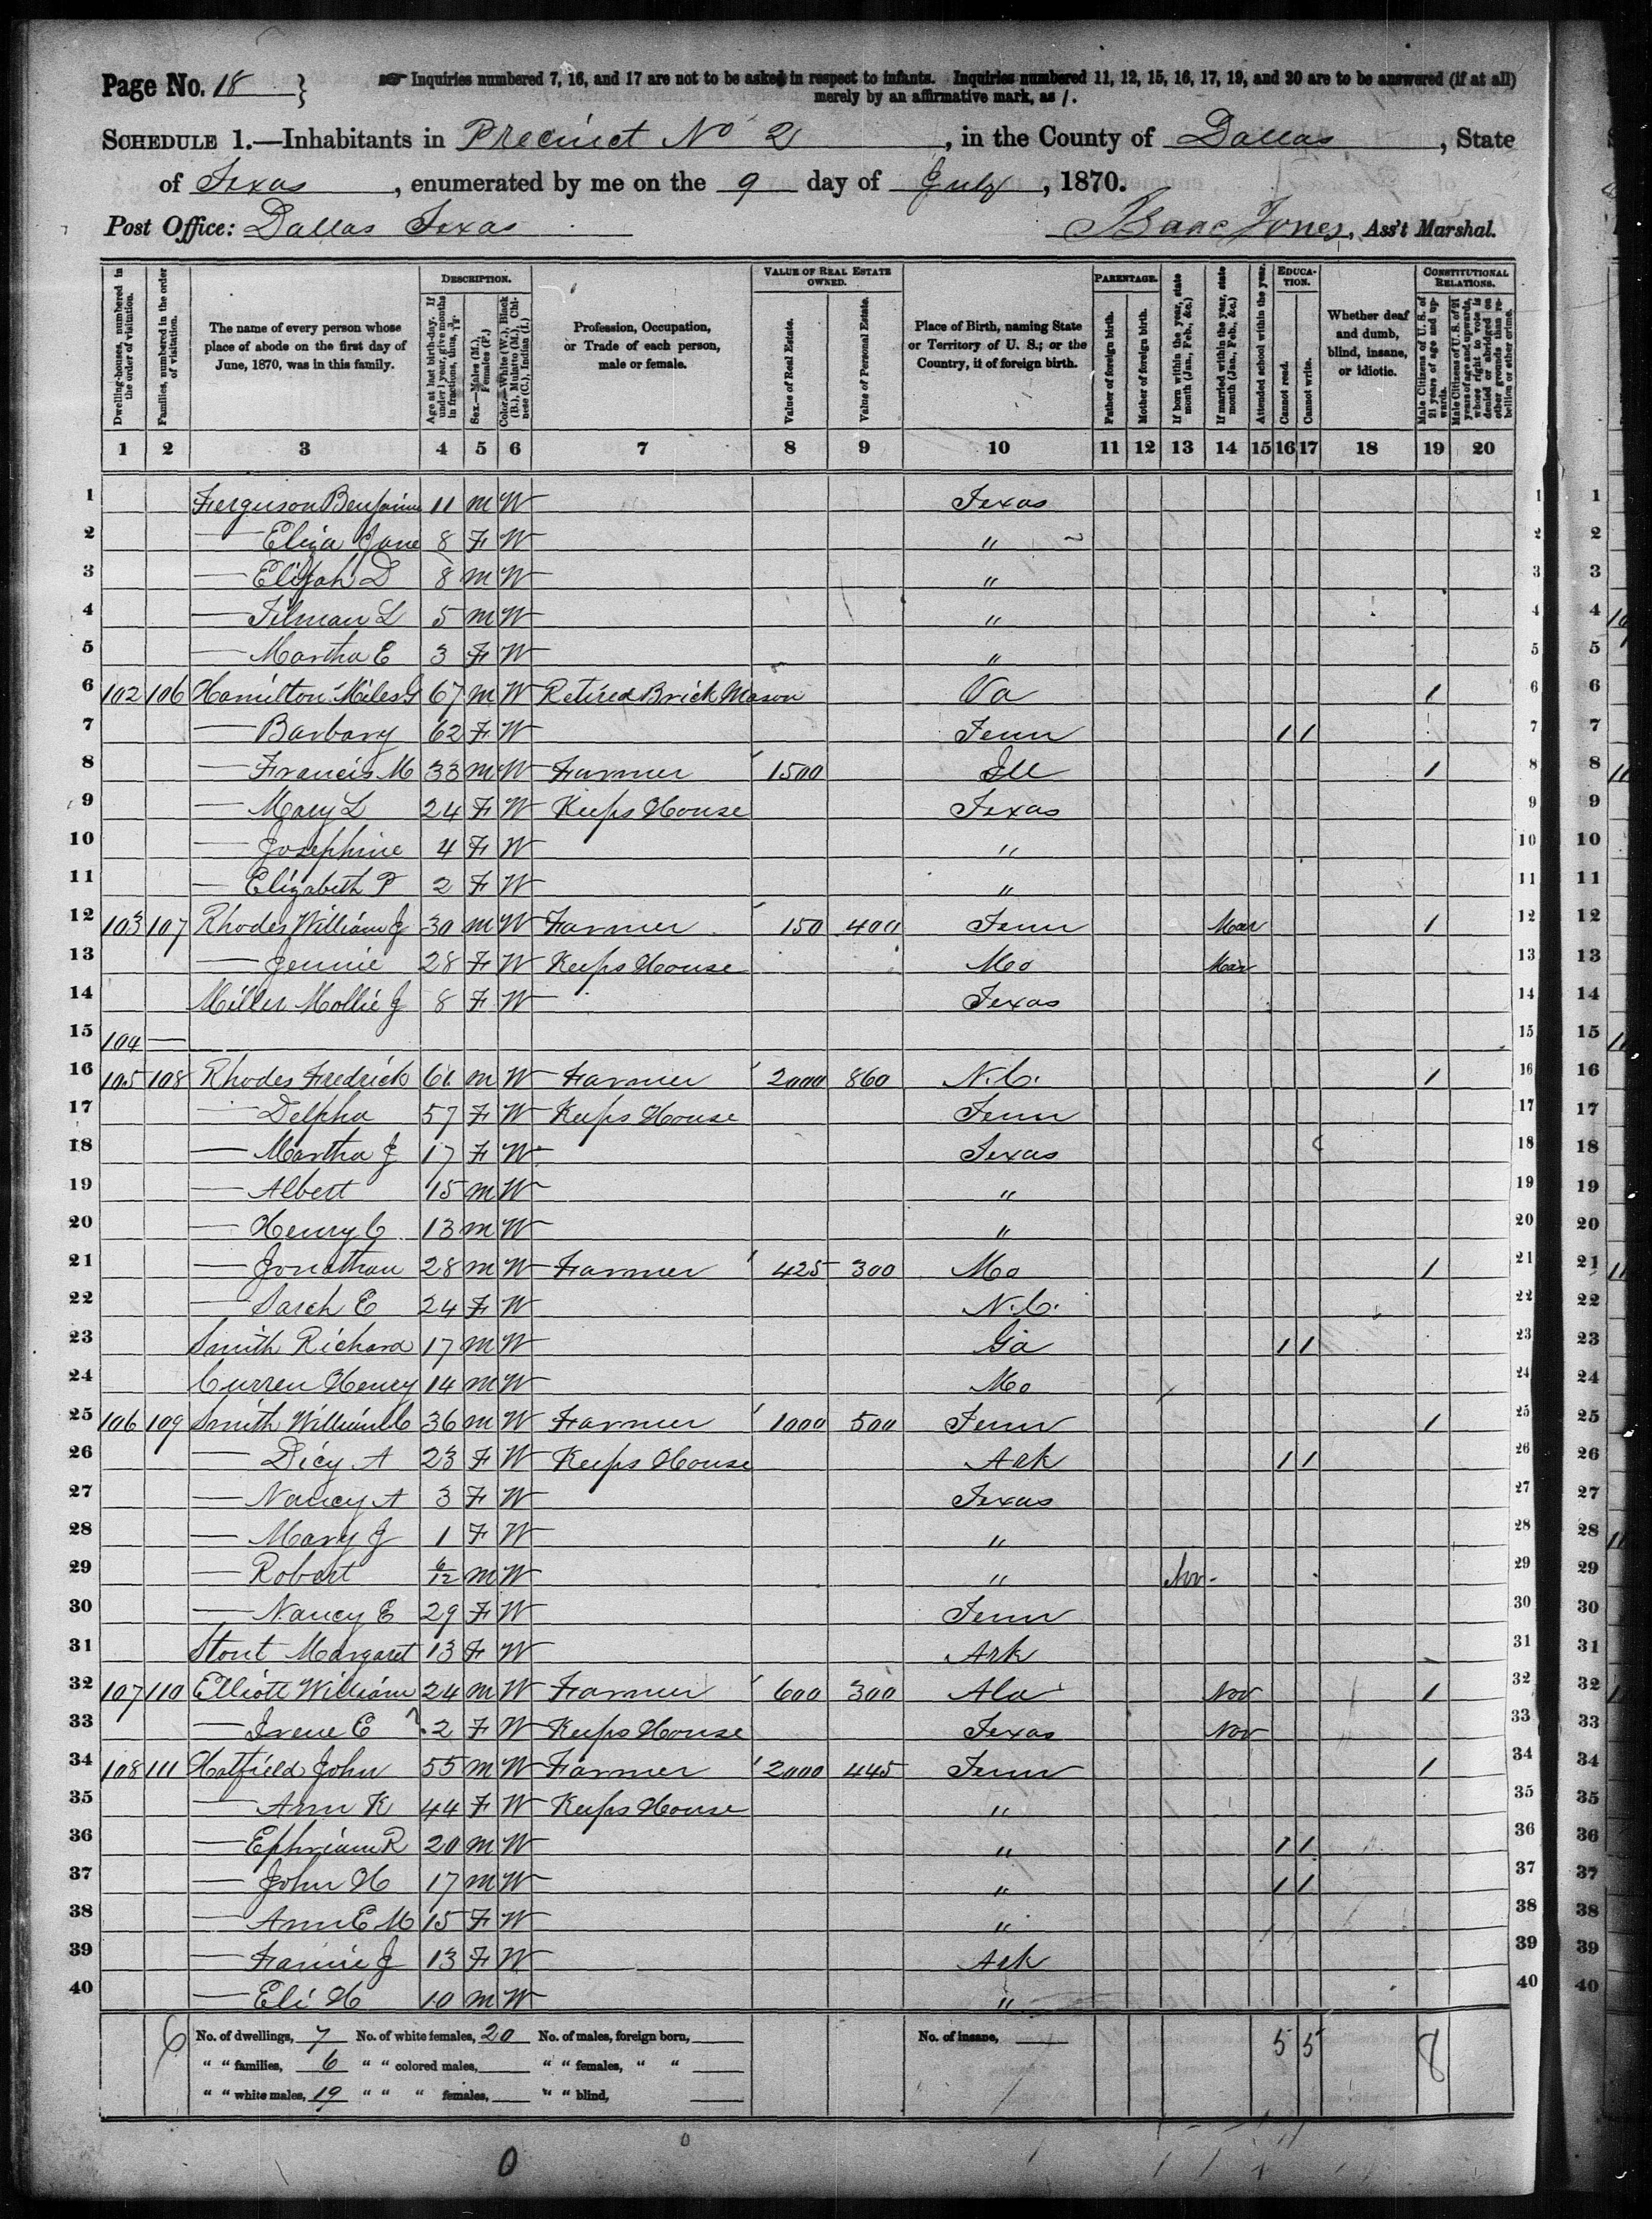 Page No. 18 }
☞ Inquiries numbered 7, 16, and 17 are not to be asked in respect to infants. Inquiries numbered 11, 12, 15, 16, 17, 19, and 20 are to be answered (if at all)
merely by an affirmative mark, as /.
SCHEDULE 1.—Inhabitants in Precinct No 2, in the County of Dallas, State
of Texas, enumerated by me on the 9 day of July, 1870.
Post Office: Dallas Texas
Isaac Jones, Ass't Marshal.
Dwelling-houses, numbered in the order of visitation.
Families, numbered in the order of visitation.
The name of every person whose place of abode on the first day of June, 1870, was in this family.
DESCRIPTION.
Age at last birth-day. If under 1 year, give months in fractions, thus, 3/12.
Sex.—Males (M.), Females (F.)
Color.—White (W.), Black (B.), Mulatto (M.), Chinese (C.), Indian (I.)
Profession, Occupation, or Trade of each person, male or female.
VALUE OF REAL ESTATE OWNED.
Value of Real Estate.
Value of Personal Estate.
Place of Birth, naming State or Territory of U. S.; or the Country, if of foreign birth.
PARENTAGE.
Father of foreign birth.
Mother of foreign birth.
If born within the year, state month (Jan., Feb., &c.)
If married within the year, state month (Jan., Feb., &c.)
Attended school within the year.
EDUCATION.
Cannot read.
Cannot write.
Whether deaf and dumb, blind, insane, or idiotic.
CONSTITUTIONAL RELATIONS.
Male Citizens of U. S. of 21 years of age and upwards.
Male Citizens of U. S. of 21 years of age and upwards, whose right to vote is denied or abridged on other grounds than rebellion or other crime.
1 2 3 4 5 6 7 8 9 10 11 12 13 14 15 16 17 18 19 20
1 Ferguson Benjamin 11 M W Texas 1
2 — Eliza Jane 8 F W " 2
3 — Elijah D 8 M W " 3
4 — Tilman L 5 M W " 4
5 — Martha E 3 F W " 5
6 102 106 Hamilton Miles G 67 M W Retired Brick Mason Va 1 6
7 — Barbary 62 F W Tenn 1 1 7
8 — Francis M 33 M W Farmer 1500 Ill 1 8
9 — Mary L 24 F W Keeps House Texas 9
10 — Josephine 4 F W " 10
11 — Elizabeth P 2 F W " 11
12 103 107 Rhodes William J 30 M W Farmer 150 400 Tenn Mar 1 12
13 — Jennie 28 F W Keeps House Mo Mar 13
14 Miller Mollie J 8 F W Texas 14
15 104 — 15
16 105 108 Rhodes Fredrick 61 M W Farmer 2000 860 N.C. 1 16
17 — Delpha 57 F W Keeps House Tenn 17
18 — Martha J 17 F W Texas 18
19 — Albert 15 M W " 19
20 — Henry C 13 M W " 20
21 — Jonathan 28 M W Farmer 425 300 Mo 1 21
22 — Sarah E 24 F W N.C. 22
23 Smith Richard 17 M W Ga 1 1 23
24 Curren Henry 14 M W Mo 24
25 106 109 Smith William C 36 M W Farmer 1000 500 Tenn 1 25
26 — Dicy A 23 F W Keeps House Ark 1 1 26
27 — Nancy A 3 F W Texas 27
28 — Mary J 1 F W " 28
29 — Robert 6/12 M W " Nov. 29
30 — Nancy E 29 F W Tenn 30
31 Stout Margaret 13 F W Ark 31
32 107 110 Elliott William 24 M W Farmer 600 300 Ala Nov 1 32
33 — Irene E 2 F W Keeps House Texas Nov 33
34 108 111 Hatfield John 55 M W Farmer 2000 445 Tenn 1 34
35 — Ann K 44 F W Keeps House " 35
36 — Ephriam R 20 M W " 1 1 36
37 — John H 17 M W " 1 1 37
38 — Ann E M 15 F W " 38
39 — Fannie J 13 F W Ark 39
40 — Eli H 10 M W " 40
6 No. of dwellings, 7 No. of white females, 20 No. of males, foreign born, No. of insane, 5 5 8
" " families, 6 " " colored males, " " females, " "
" " white males, 19 " " " females, " " blind,
0